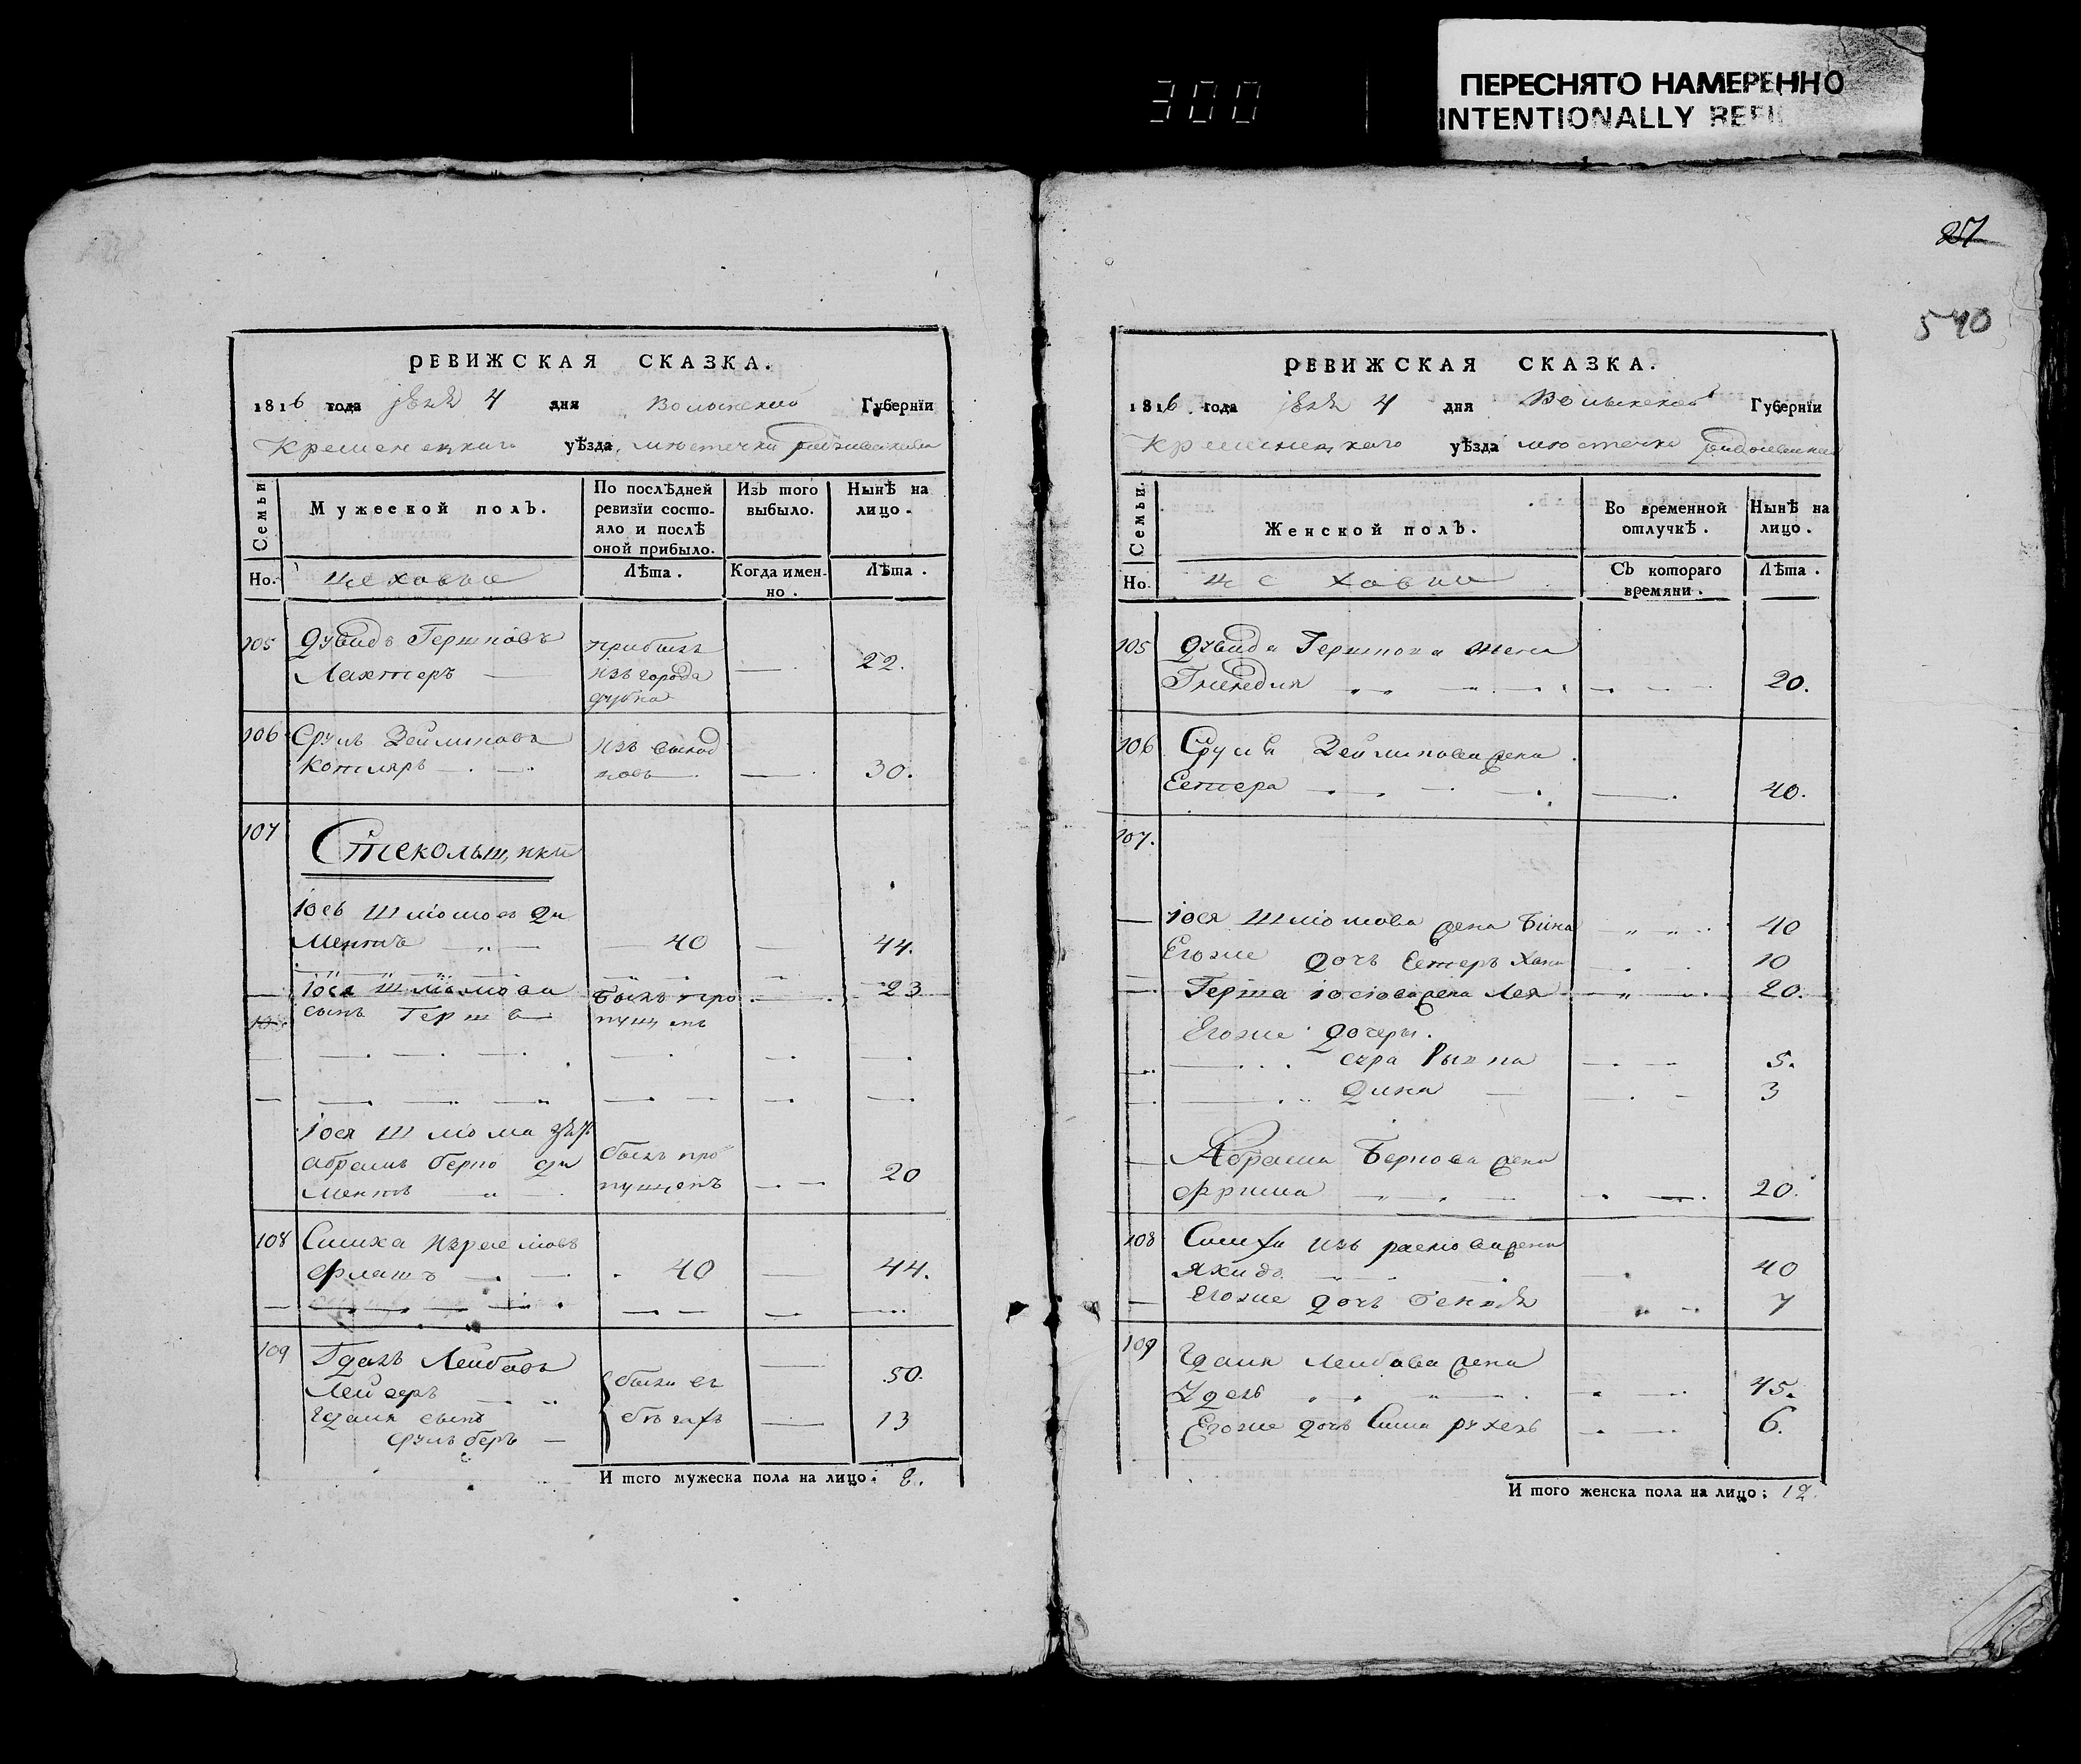 300
ПЕРЕСНЯТО НАМЕРЕННО
INTENTIONALLY REFIL
27
540
РЕВИЖСКАЯ СКАЗКА.
1816 года 4 дня Волынской Губернїи
Кременецкаго уѣзда, местечка
Семьи
Мужеской полъ.
По послѣдней ревизїи состо-
яло и послѣ
оной прибыло.
Изъ того выбыло.
Нынѣ на лицо.
Но.
цеховые
Лѣта.
Когда имен-
но.
Лѣта.
105 Дувидъ Гершковъ
Лахтеръ —
прибылъ
изъ города
дубна
— 22.
106 Сруль Зейликовъ
Котляръ
изъ выход
цовъ
— 30.
107
Стекольщики
Іось Шліомовъ Ди
ментъ — 40 — 44.
Іося Шліомова
сынъ Герш
былъ про
пущенъ
23
Іося Шліома
абрамъ берко ди
ментъ
былъ про
пущенъ
20
108 Симха Изралиовъ
Флашъ 40 — 44.
109 Гдаль Лейбовъ
Лейзеръ
были въ
бѣгахъ
50.
Гдаля сынъ
Сруль беръ — 13
И того мужеска пола на лицо: 8.
РЕВИЖСКАЯ СКАЗКА.
1816 года 4 дня Волынской Губернїи
Кременецкаго уѣзда местечка
Семьи.
Женской полъ.
Во временной
отлучкѣ.
Нынѣ на
лицо.
Но.
це ховые
Съ котораго
времяни.
Лѣта.
105 Дувида Гершкова жена
Гненедия 20.
106 Сруля Зейликова жена
Естера 40.
107.
Іося Шліомова жена Бина 40
Егоже дочь Естеръ Хана 10
Герша іосіова жена Лея 20.
Егоже дочеры.
сура Рыхла 5.
Дина 3
Абрама Беркова жена
Фрима 20.
108 Симхи изъ раелова жена
Яхидъ 40
Егоже дочь 7
109 Гдаля Лейбова жена
Удель 45.
Егоже дочь Сима рухель 6.
И того женска пола на лицо: 12.